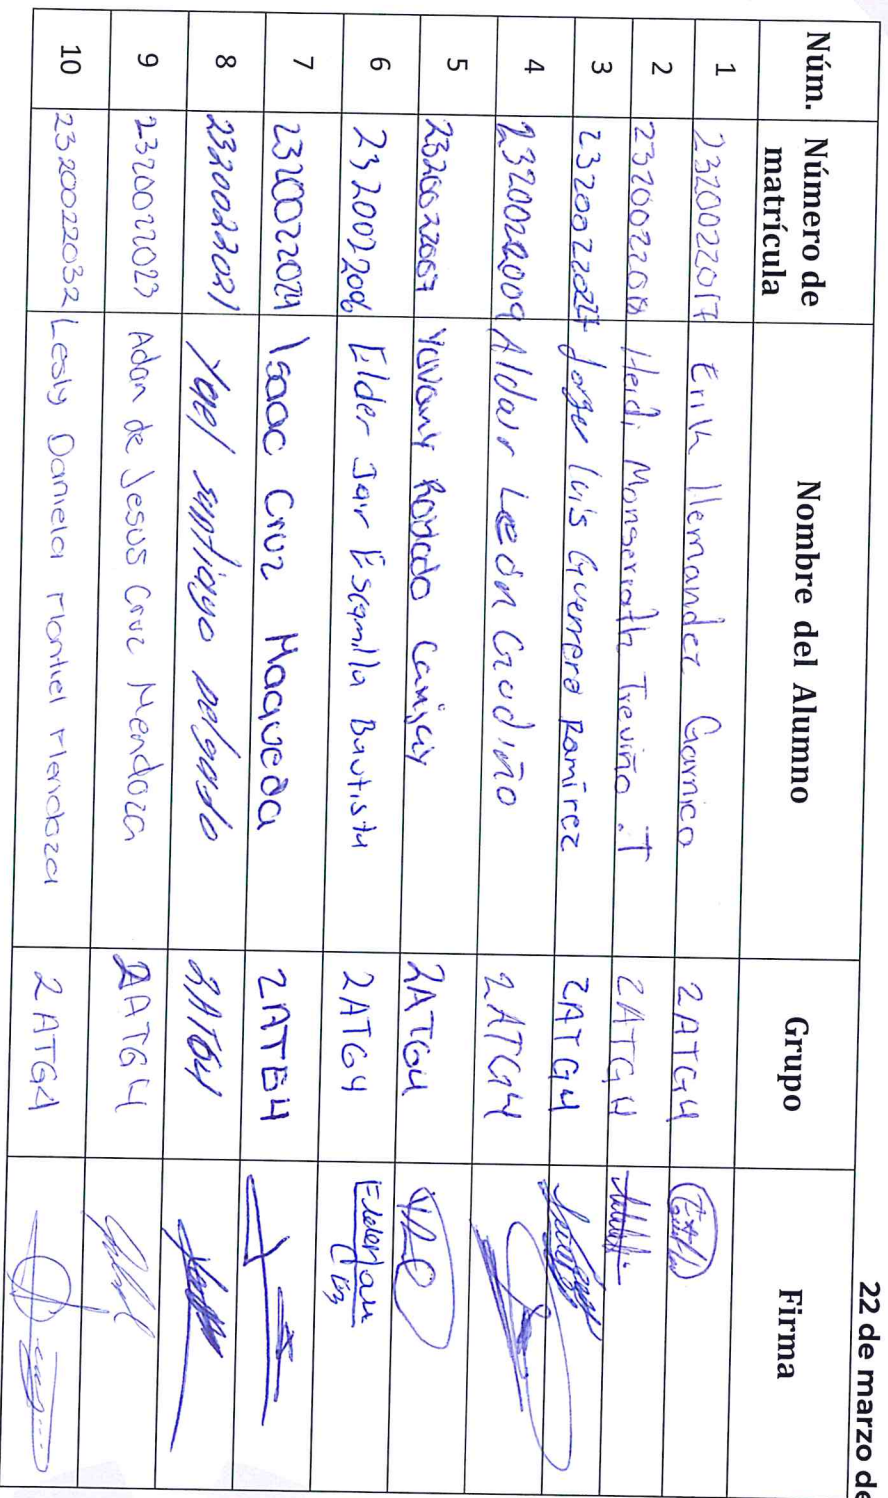 22 de marzo de
Núm. Número de matrícula Nombre del Alumno Grupo Firma
1 2320022017 Erik Hernandez Garnica 2ATG4
2 Heidi Monserrath Treviño .T 2ATG4
3 Jorge luis Guerrero Ramírez 2ATG4
4 2320022009 Aldair León Gudiño 2ATG4
5 2320022007 Yovany 2ATG4
6 Elder Jair Escamilla Bautista 2ATG4
7 Isaac Cruz Maqueda 2ATG4
8 2320022021 Yael santiago delgado 2ATG4
9 2320022023 Adan de Jesus Cruz Mendoza 2ATG4
10 2320022032 Lesly Daniela Montiel Mendoza 2ATG4